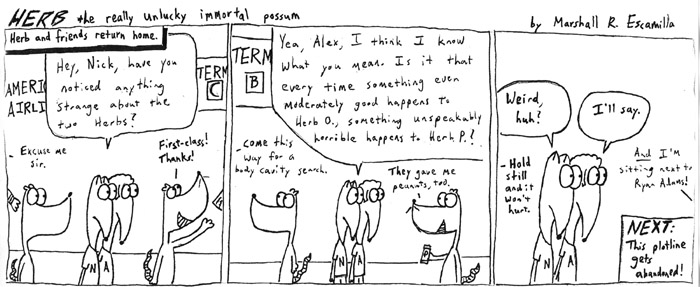 HERB the really unlucky immortal possum
by Marshall R. Escamilla
Herb and friends return home.
Hey, Nick, have you
noticed anything
strange about the
two Herbs?
AMERIC
AIRLI
TERM
C
- Excuse me
sir.
First-class!
Thanks!
N A
TERM
B
Yea, Alex, I think I know
what you mean. Is it that
every time something even
moderately good happens to
Herb O., something unspeakably
horrible happens to Herb P.?
-Come this
way for a
body cavity search.
They gave me
peanuts, too.
N A
Weird,
huh?
I'll say.
- Hold
still
and it
won't
hurt.
And I'm
sitting next to
Ryan Adams!
N A
NEXT:
This plotline
gets
abandoned!